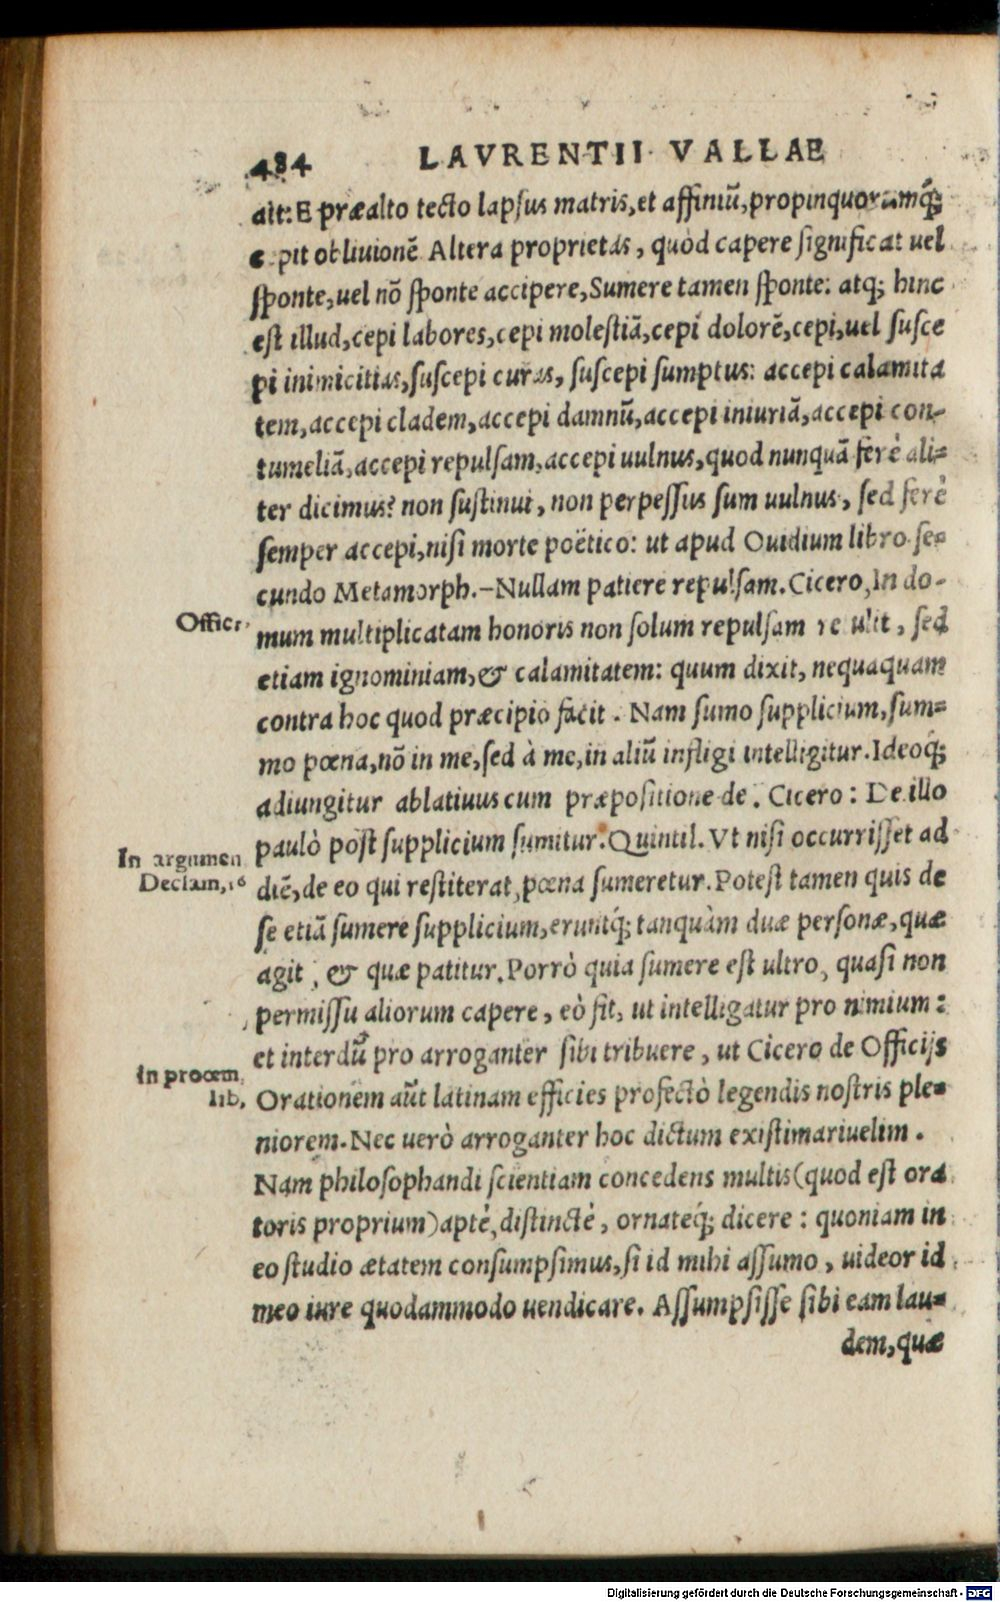 484 LAVRENTII VALLAE
ait: E præalto tecto lapsus matris, et affiniũ, propinquorumq́;
cepit obliuionẽ Altera proprietas, quòd capere significat uel
sponte, uel nõ sponte accipere, Sumere tamen sponte: atq; hinc
est illud, cepi labores, cepi molestiã, cepi dolorẽ, cepi, uel susce
pi inimicitias, suscepi curas, suscepi sumptus: accepi calamita
tem, accepi cladem, accepi damnũ, accepi iniuriã, accepi con-
tumeliã, accepi repulsam, accepi uulnus, quod nunquã ferè ali=
ter dicimus? non sustinui, non perpessus sum uulnus, sed ferè
semper accepi, nisi morte poëtico: ut apud Ouidium libro se=
cundo Metamorph.-Nullam patiere repulsam. Cicero, In do-
Offic.
mum multiplicatam honoris non solum repulsam retulit, sed
etiam ignominiam, & calamitatem: quum dixit, nequaquam
contra hoc quod præcipio facit. Nam sumo supplicium, sum=
mo pœna, nõ in me, sed à me, in aliũ infligi intelligitur. Ideoq́;
adiungitur ablatiuus cum præpositione de. Cicero: De illo
paulò post supplicium sumitur. Quintil. Vt nisi occurrisset ad
In argumen
Declam, 16
diẽ, de eo qui restiterat, pœna sumeretur. Potest tamen quis de
se etiã sumere supplicium, eruntq́; tanquàm duæ personæ, quæ
agit, & quæ patitur. Porrò quia sumere est ultro, quasi non
permissu aliorum capere, eò fit, ut intelligatur pro nimium:
et interdũ pro arroganter sibi tribuere, ut Cicero de Officijs
In procem,
lib,
Orationem aũt latinam efficies profectò legendis nostris ple=
niorem. Nec uerò arroganter hoc dictum existimariuelim.
Nam philosophandi scientiam concedens multis (quod est ora
toris proprium) aptè, distinctè, ornateq́; dicere: quoniam in
eo studio ætatem consumpsimus, si id mihi assumo, uideor id
meo iure quodammodo uendicare. Assumpsisse sibi eam lau=
dem, quæ
Digitalisierung gefördert durch die Deutsche Forschungsgemeinschaft - DFG